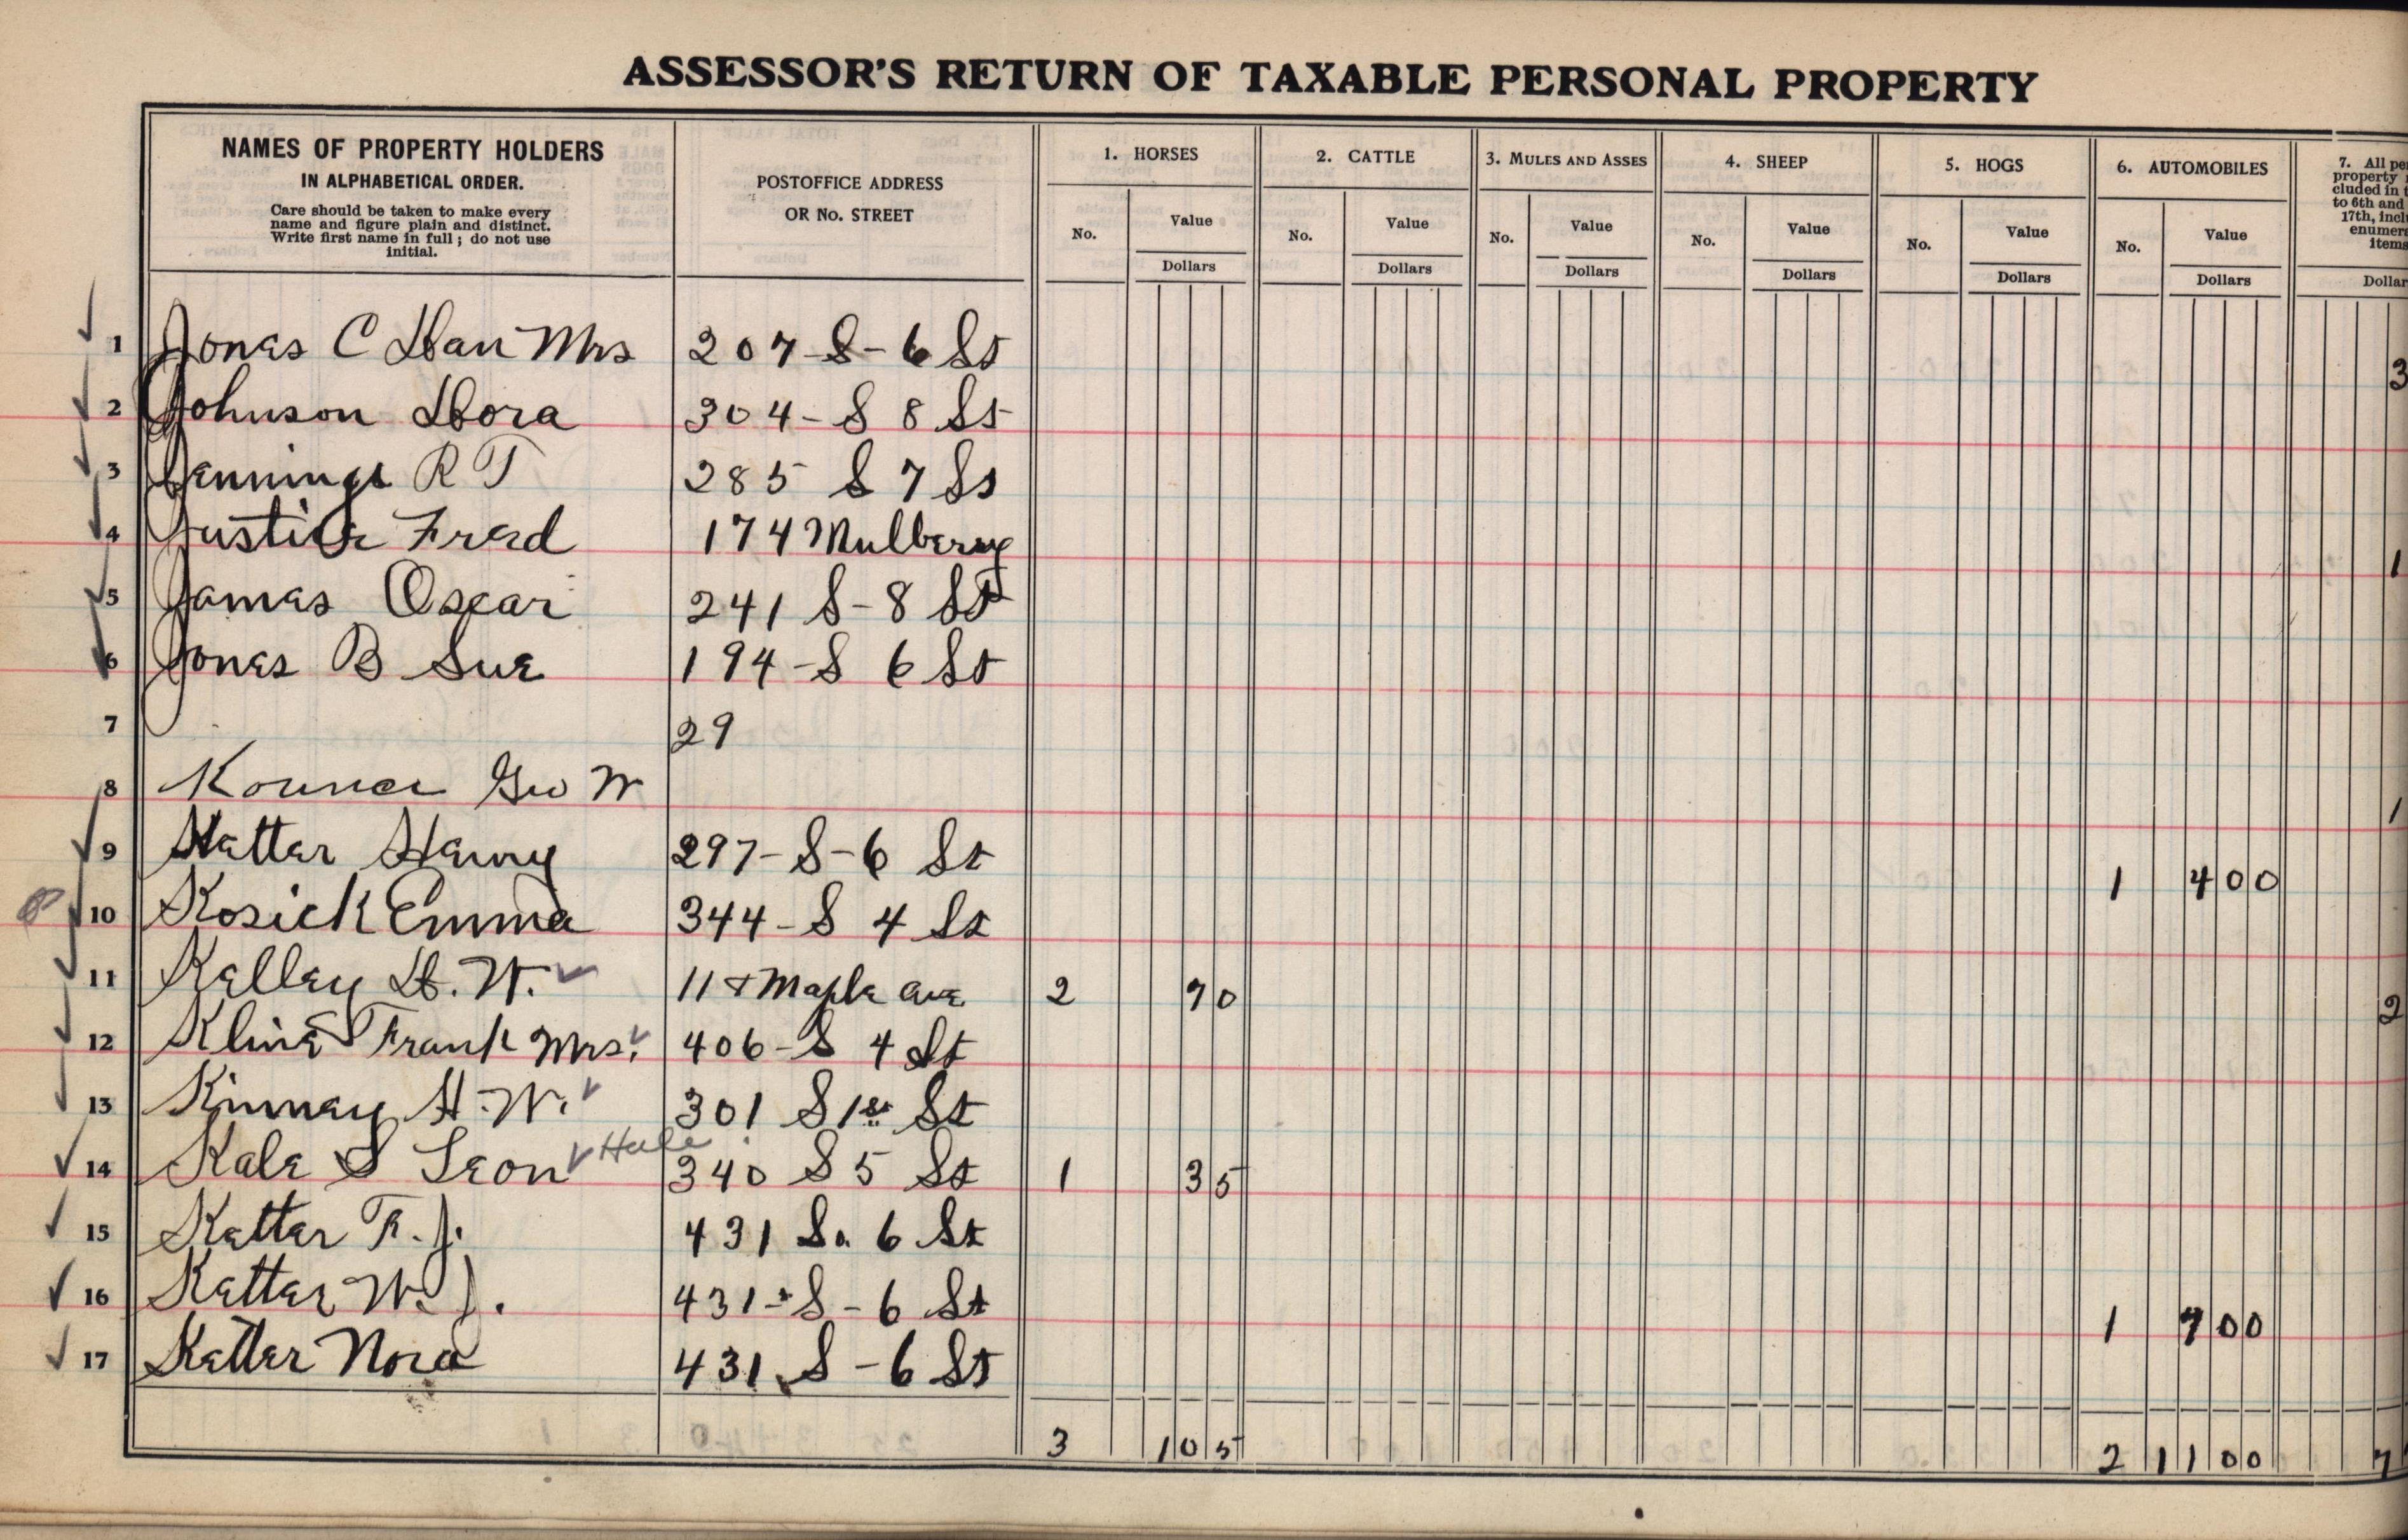 ASSESSOR'S RETURN OF TAXABLE PERSONAL PROPERTY
NAMES OF PROPERTY HOLDERS
IN ALPHABETICAL ORDER.
Care should be taken to make every
name and figure plain and distinct.
Write first name in full; do not use
initial.
POSTOFFICE ADDRESS
OR No. STREET
1. HORSES
No. Value
Dollars
2. CATTLE
No. Value
Dollars
3. MULES AND ASSES
No. Value
Dollars
4. SHEEP
No. Value
Dollars
5. HOGS
No. Value
Dollars
6. AUTOMOBILES
No. Value
Dollars
7. All
property
cluded in
to 6th and
17th,
items
1 Jones C Dan Mrs 207-S-6 St 3
2 Johnson Dora 304-S 8 St
3 Jennings R T 285 S 7 St
4 Justice Fred 174 Mulberry 1
5 James Oscar 241 S-8 St
6 Jones B Sue 194-S 6 St
7 29
8 Geo W 1
9 Ketter Henry 297-S-6 St 1 400
10 Kosick Emma 344-S 4 St
11 Kelley D. W. 11 & Maple Ave 2 70 2
12 Kline Frank Mrs. 406-S 4 St
13 Kinney H. W. 301 S 1st St
Hale
14 Kale S Leon 340 S 5 St 1 35
15 Ketter F. J. 431 So. 6 St
16 Ketter W. J. 431-S-6 St 1 700
17 Ketter Nora 431 S-6 St
3 105 2 1100 7